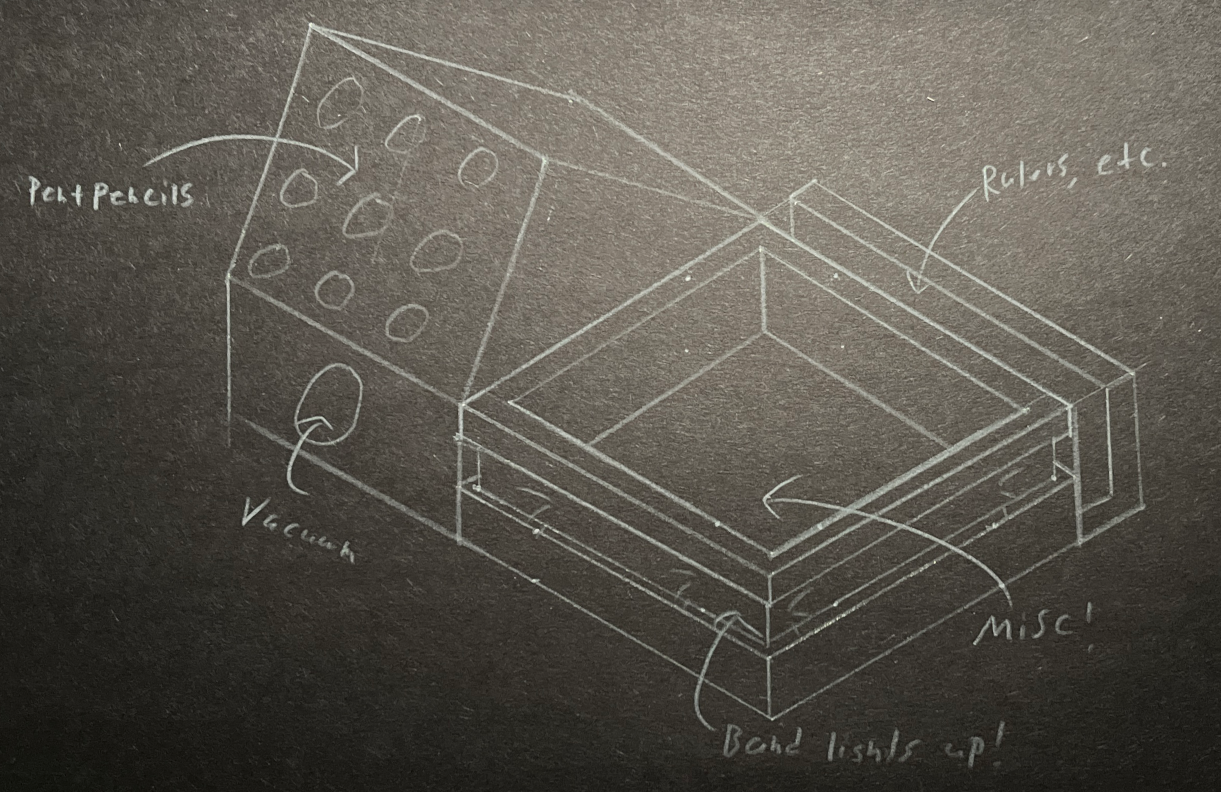 Pen + Pencils
Rulers, etc.
Vacuum
Misc!
Band lights up!